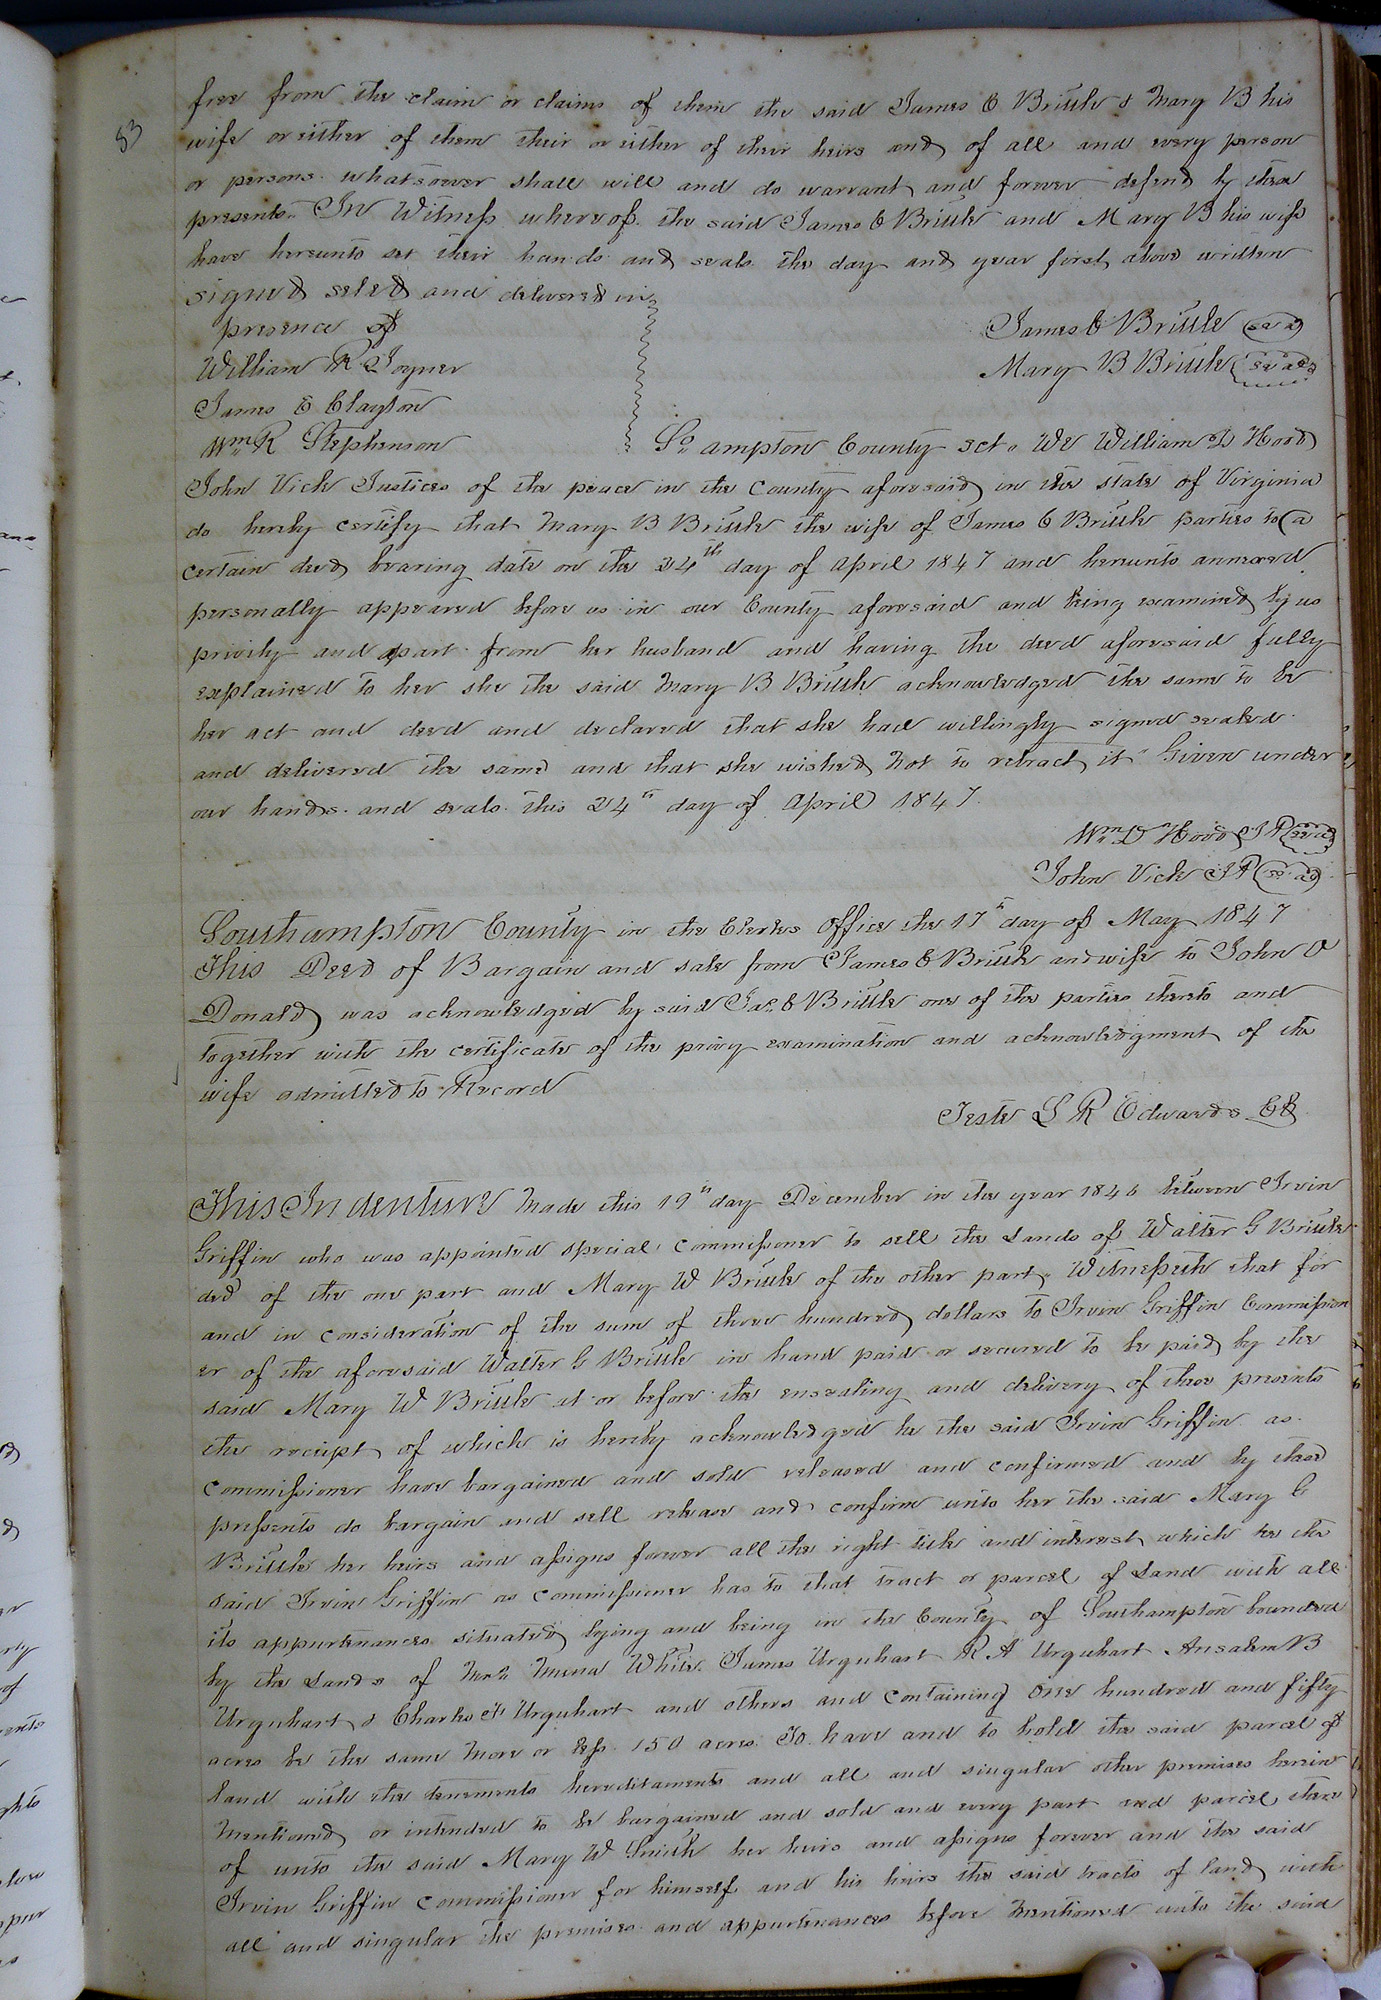 53
free from the claim or claims of them the said James E Brittle & Mary B his
wife or either of them their or either of their heirs and of all and every person
or persons whatsoever shall will and do warrant and forever defend by these
presents. In Witness whereof the said James E Brittle and Mary B his wife
have hereunto set their hands and seals the day and year first above written
signed seled and delivered in
presence of
James E Brittle seal
William R Joyner
Mary B Brittle seal
James E Clayton
Wm R Stephenson
So ampton County sct. We William D Hood
John Vick Justices of the peace in the county aforesaid in the state of Virginia
do hereby certify that Mary B Brittle the wife of James E Brittle parties to a
certain deed bearing date on the 24th day of April 1847 and hereunto annexed
personally appeared before us in our County aforesaid and being examined by us
privily and apart from her husband and having the deed aforesaid fully
explained to her she the said Mary B Brittle acknowledged the same to be
her act and deed and declared that she had willingly signed sealed
and delivered the same and that she wished not to retract it Given under
our hands and seals this 24th day of April 1847.
Wm D Hood JP seal
John Vick JP seal
Southampton County in the Clerks Office the 17th day of May 1847
This Deed of Bargain and sale from James E Brittle and wife to John O
Donald was acknowledged by said Jas. E Brittle one of the parties thereto and
together with the certificate of the privy examination and acknowledgment of the
wife admitted to Record
Teste L R Edwards Clk
This Indenture Made this 19th day December in the year 1846 between Irvin
Griffin who was appointed special commissioner to sell the Lands of Walter G Brittle
ded of the one part and Mary W Brittle of the other part, Witnesseth that for
and in consideration of the sum of three hundred dollars to Irvin Griffin Commission
er of the aforesaid Walter G Brittle in hand paid or secured to be paid by the
said Mary W Brittle at or before the ensealing and delivery of these presents
the reciept of which is hereby acknowledged he the said Irvin Griffin as
commissioner have bargained and sold released and confirmed and by these
pressents do bargain and sell release and confirm unto her the said Mary C
Brittle her heirs and assigns forever all the right title and interest which he the
said Irvin Griffin as commissioner has to that tract or parcel of Land with all
its appurtenances situated lying and being in the County of Southampton bounded
by the Lands of White James Urquhart R A Urquhart Ansalem B
Urquhart & Charles F Urquhart and others and containing One hundred and fifty
acres be the same more or less 150 acres To have and to hold the said parcel of
land with the tenements hereditaments and all and singular other premises herein
mentioned or intended to be bargained and sold and every part and parcel there
of unto the said Mary W Smith her heirs and assigns forever and the said
Irvin Griffin commissioner for himself and his heirs the said tracts of land with
all and singular the premises and appurtenances before mentioned unto the said